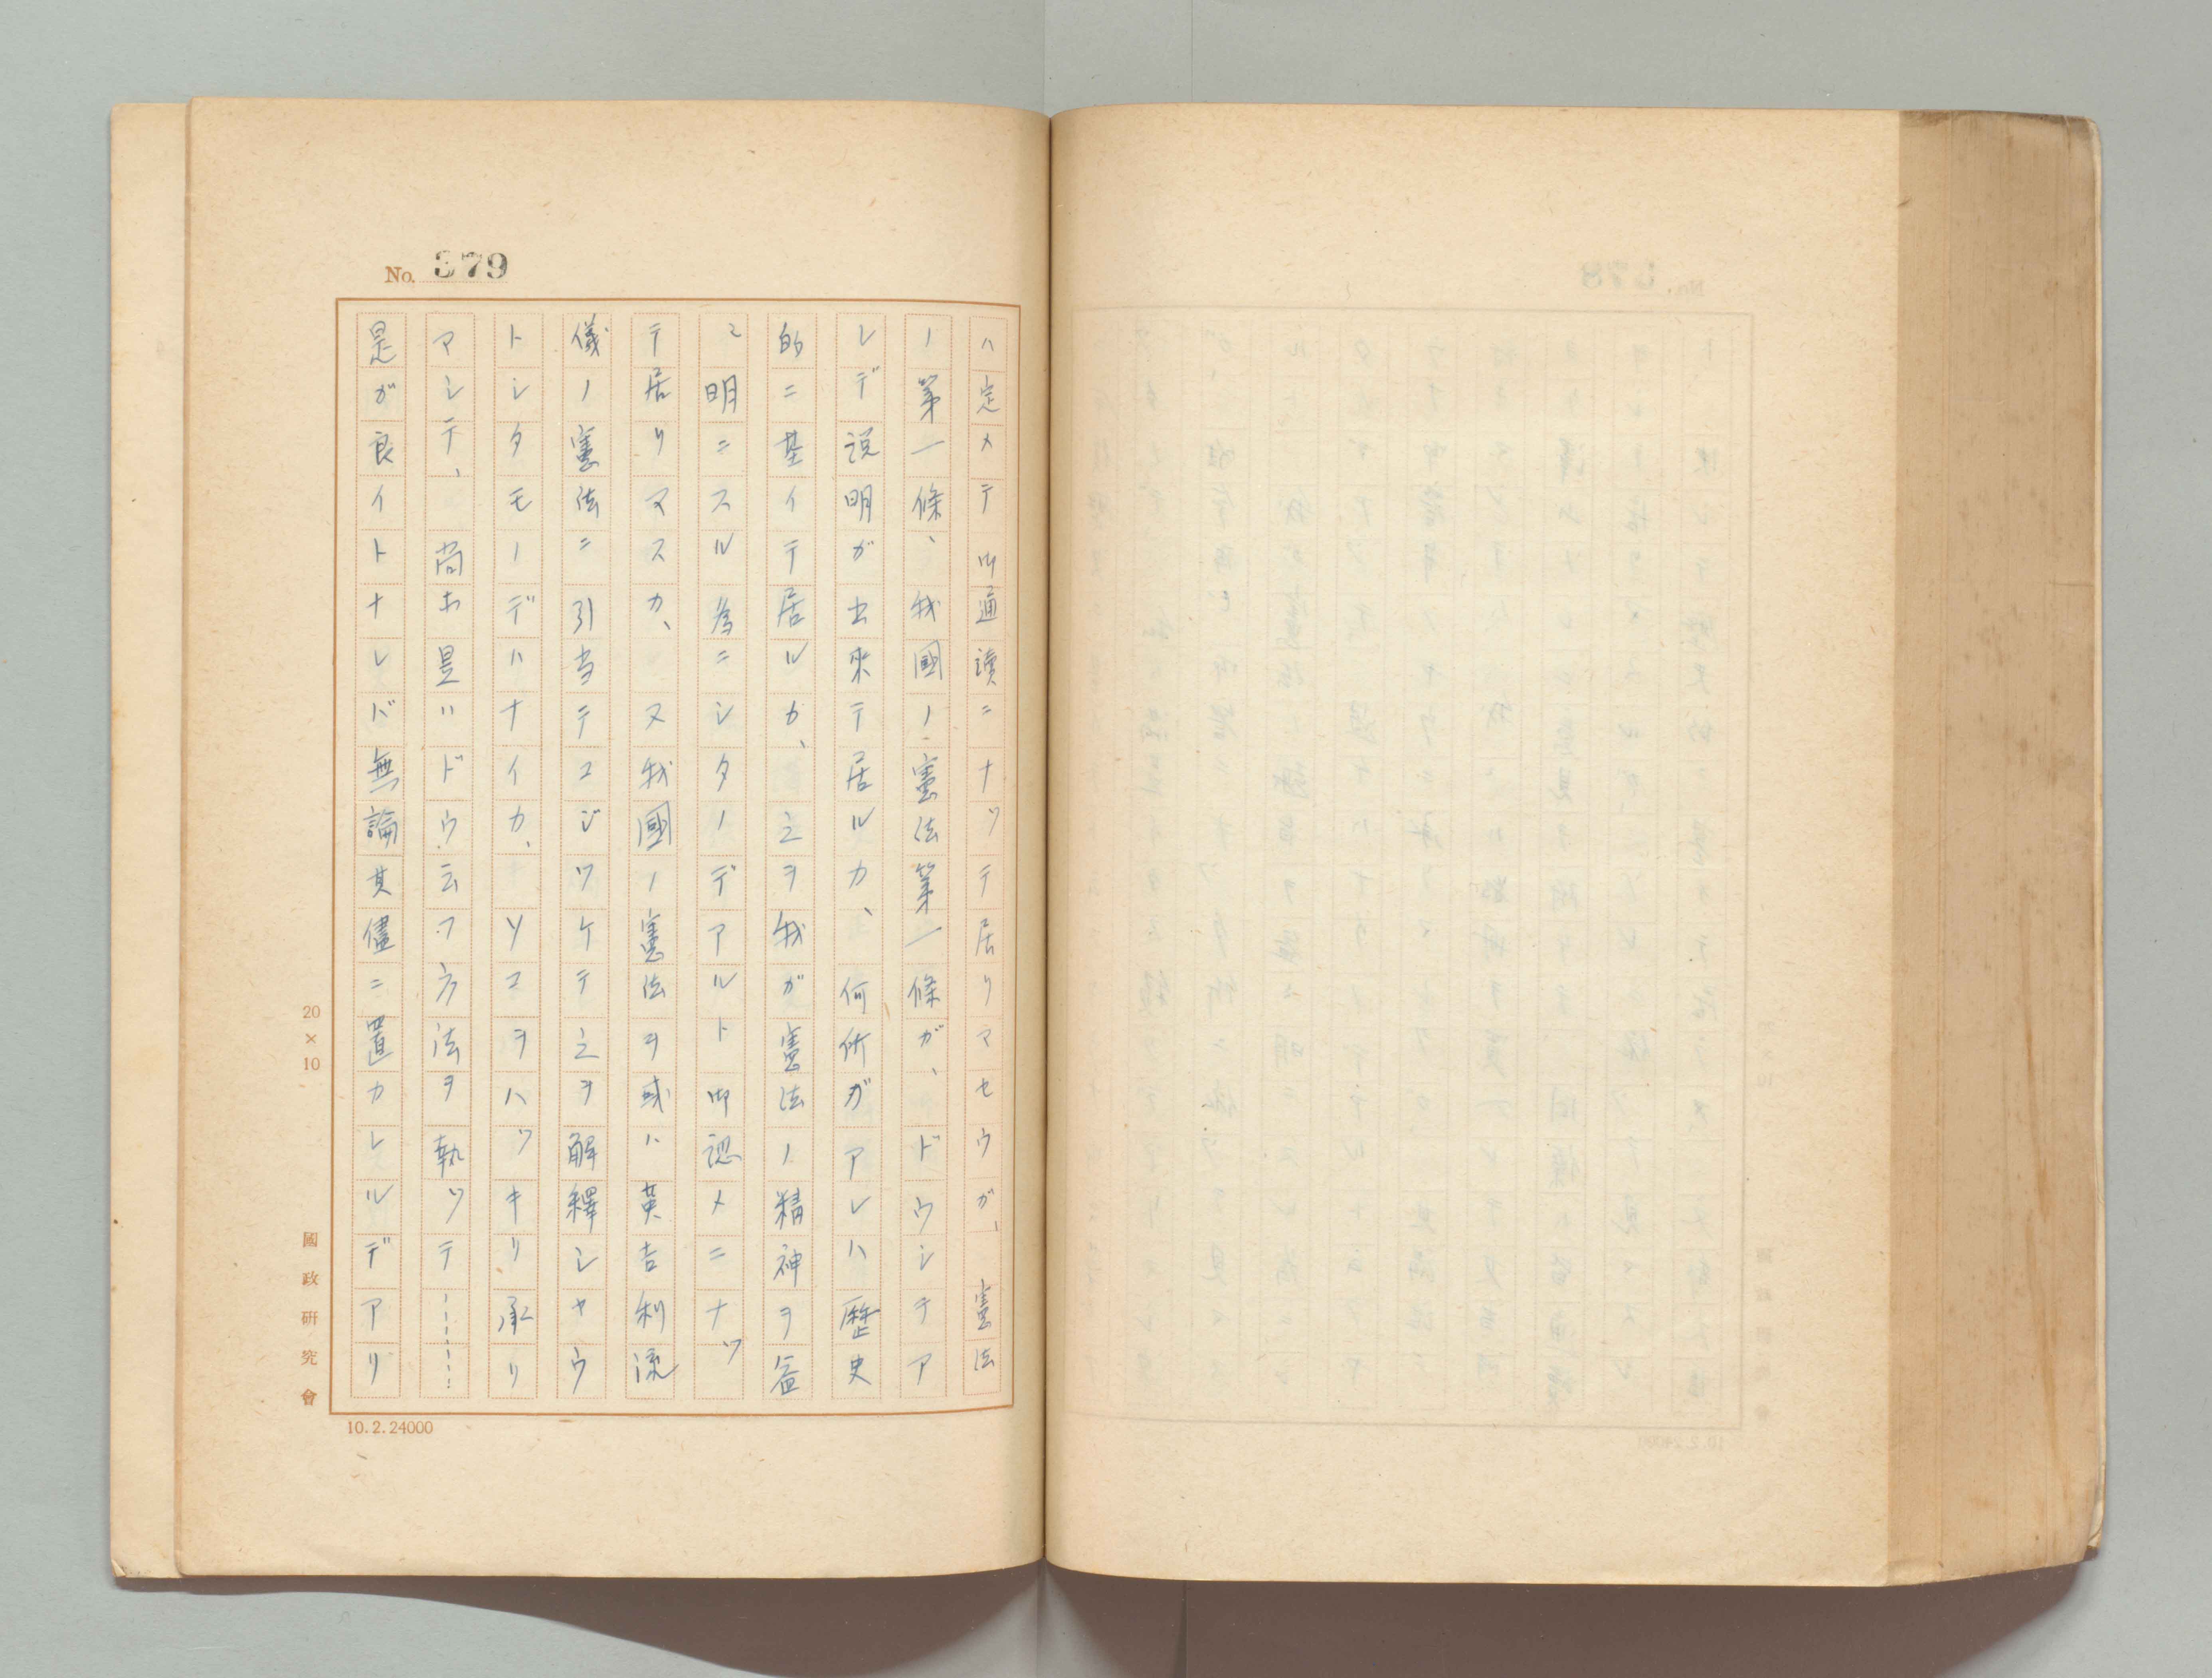 No. 379
ハ定メテ御通讀ニナツテ居リマセウガ、憲法
ノ第一條、我國ノ憲法第一條ガ、ドウシテア
レデ説明ガ出來テ居ルカ、何所ガアレハ歴史
的ニ基イテ居ルカ、之ヲ我ガ憲法ノ精神ヲ益
〻明ニスル為ニシタノデアルト御認メニナツ
テ居リマスカ、又我國ノ憲法ヲ或ハ英吉利流
儀ノ憲法ニ引当テコジツケテ之ヲ解釋シヤウ
トシタモノデハナイカ、ソコヲハツキリ承リ
マシテ、尚ホ是ハドウ云フ方法ヲ執ツテ……
是ガ良イトナレバ無論其儘ニ置カレルデアリ
20×10
國政研究會
10.2.24000